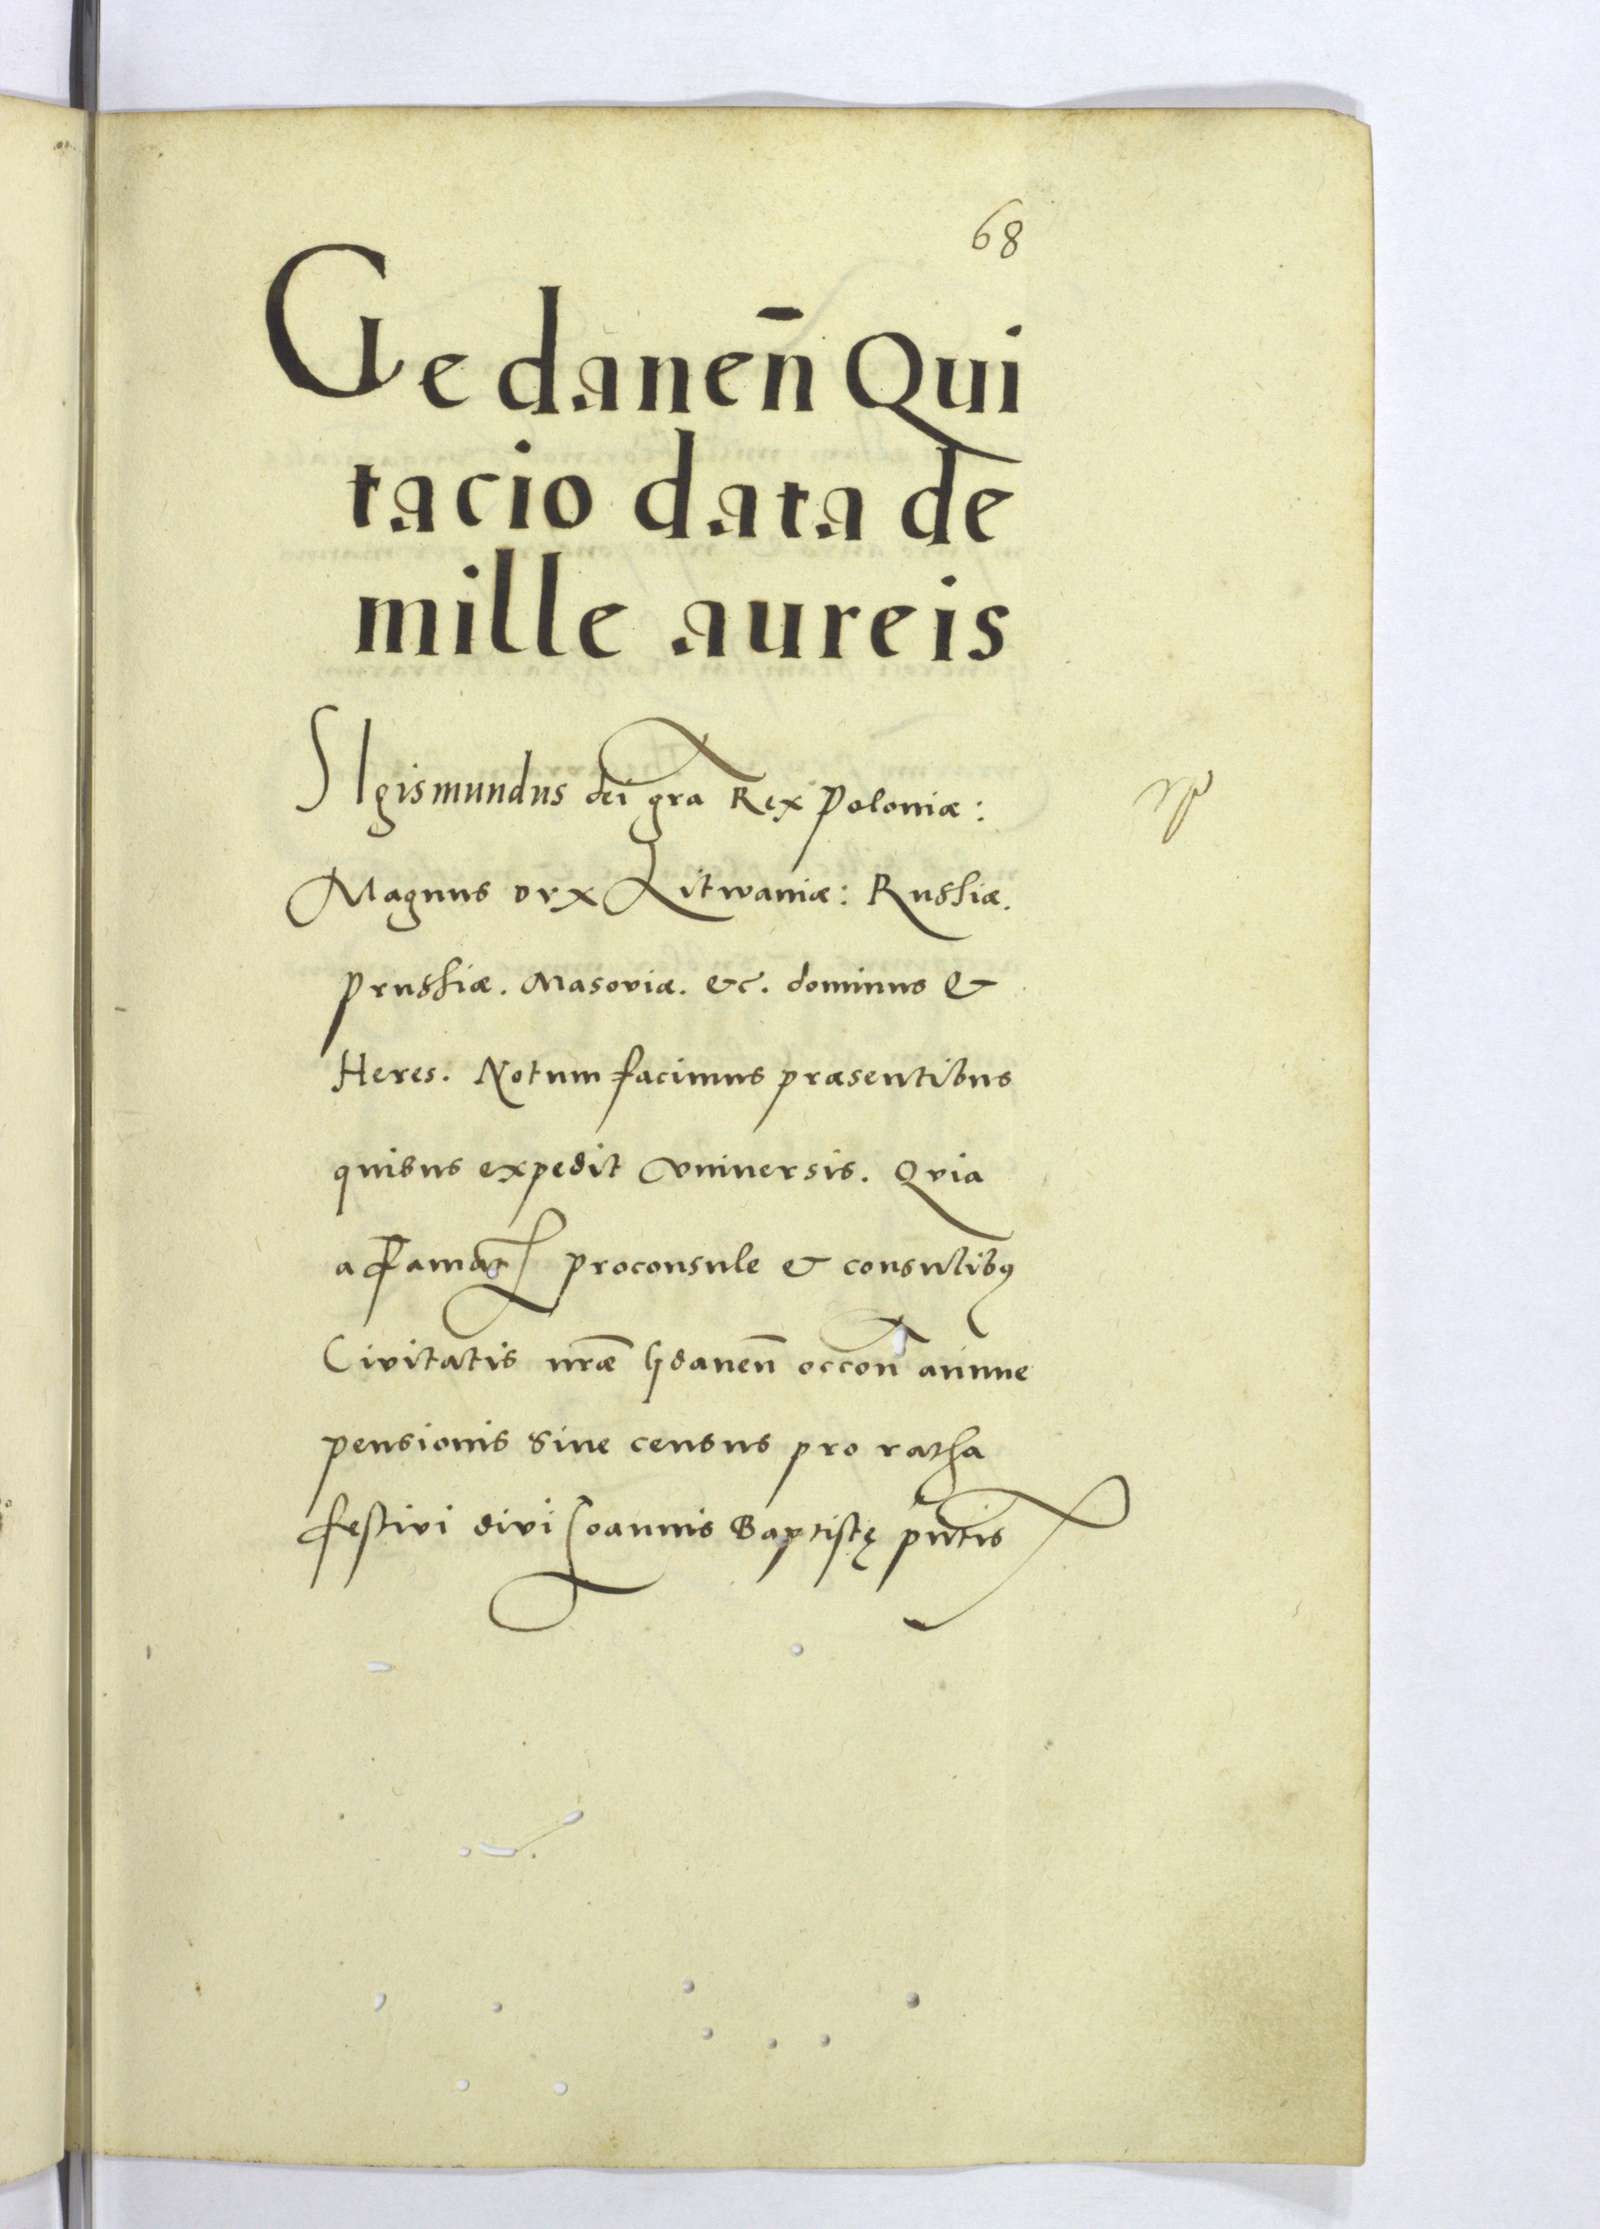 68
Gedanen̄ Qui
tacio data de
mille aureis
SIgismundus dei gra Rex Poloniæ:
Magnus Dux Litwaniæ: Russiæ.
Prussiæ. Masoviæ. &c. dominus &
Heres. Notum facimus præsentibus
quibus expedit vniuersis. Qvia
a famat proconsule & consulibꝯ
Civitatis nr̄æ Gdanen̄ occon̄ annue
pensionis siue census pro ratha
festivi divi Ioannis Baptistę pn̄tis